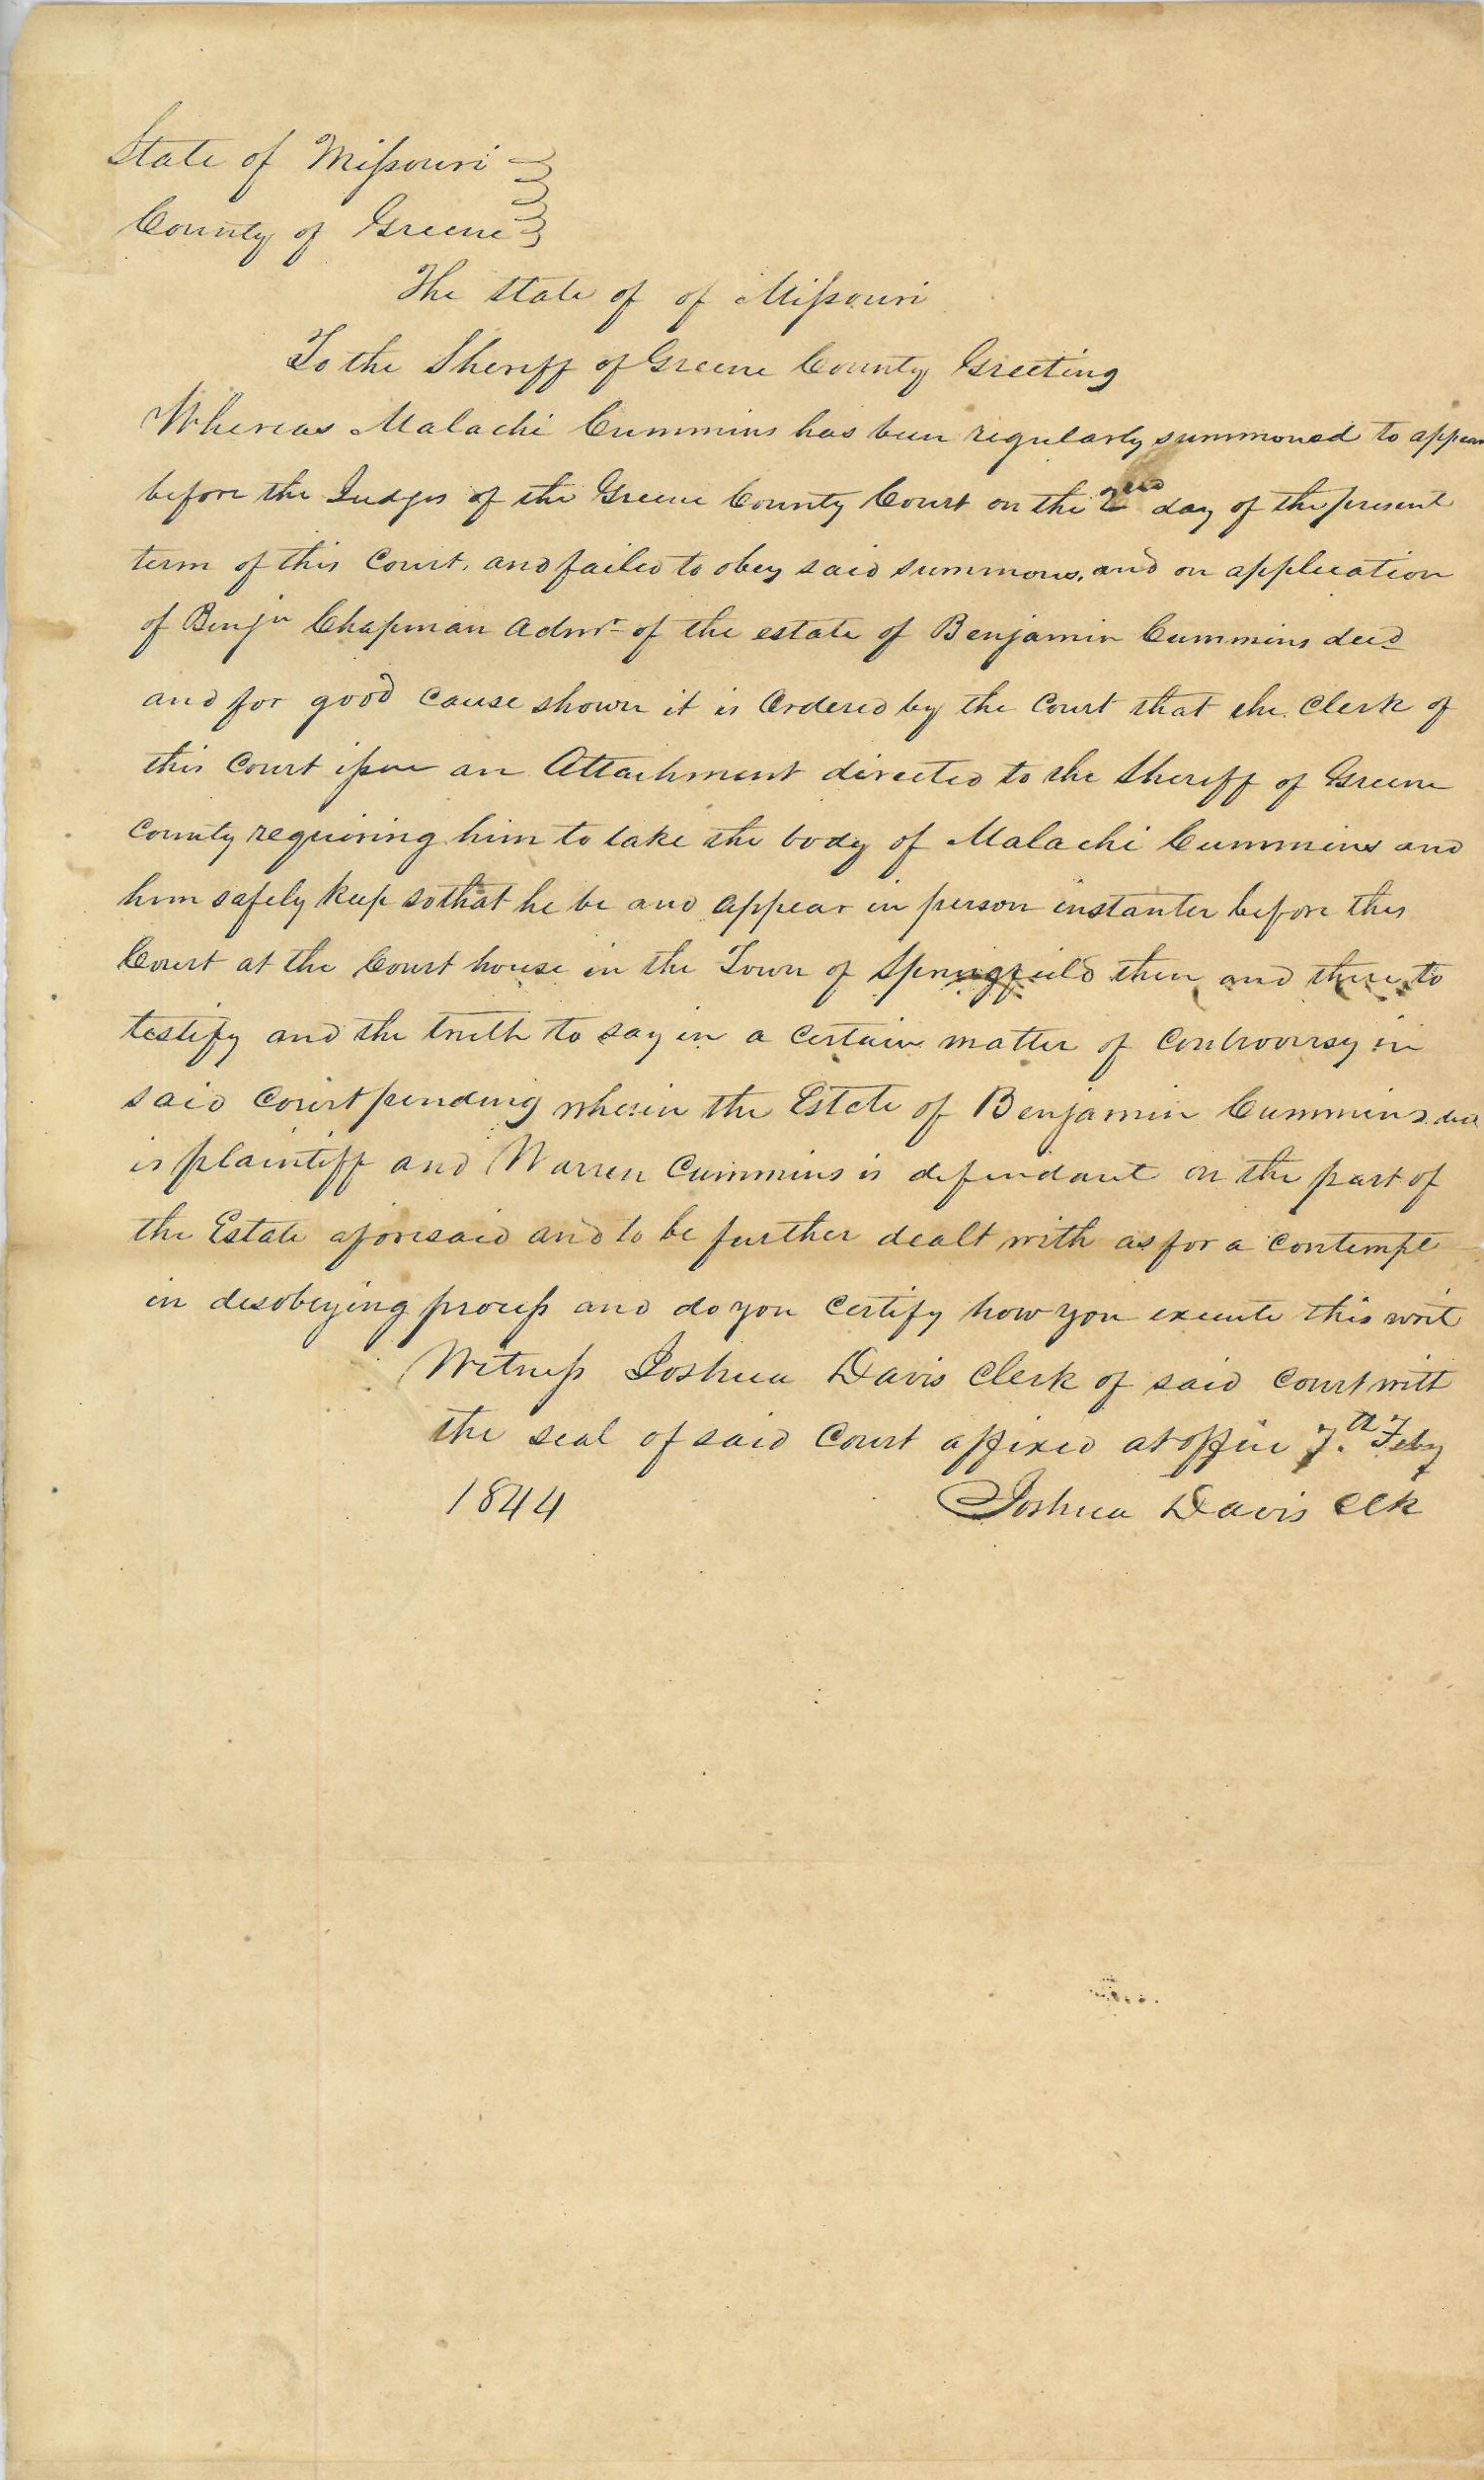 State of Missouri
County of Greene
The state of of Missouri
To the Sheriff of Greene County Greeting
Whereas Malachi Cummins has been regularly summoned to appear
before the Judges of the Greene County Court on the 2nd day of the present
term of this Court, and failed to obey said summons, and on application
of Benjn Chapman Admr of the estate of Benjamin Cummins decd
and for good cause shown it is Ordered by the Court that the Clerk of
this Court issue an Attachment directed to the Sheriff of Greene
County requiring him to take the body of Malachi Cummins and
him safely keep so that he be and appear in person instanter before this
Court at the Court house in the Town of Springfield then and there to
testify and the truth to say in a certain matter of Controversy in
said Court pending wherein the Estate of Benjamin Cummins decd
is plaintiff and Warren Cummins is defendant on the part of
the Estate aforesaid and to be further dealt with as for a contempt
in disobeying process and do you certify how you execute this writ
Witness Joshua Davis Clerk of said Court with
the seal of said Court affixed at office 7.th Feby
1844 Joshua Davis Clk